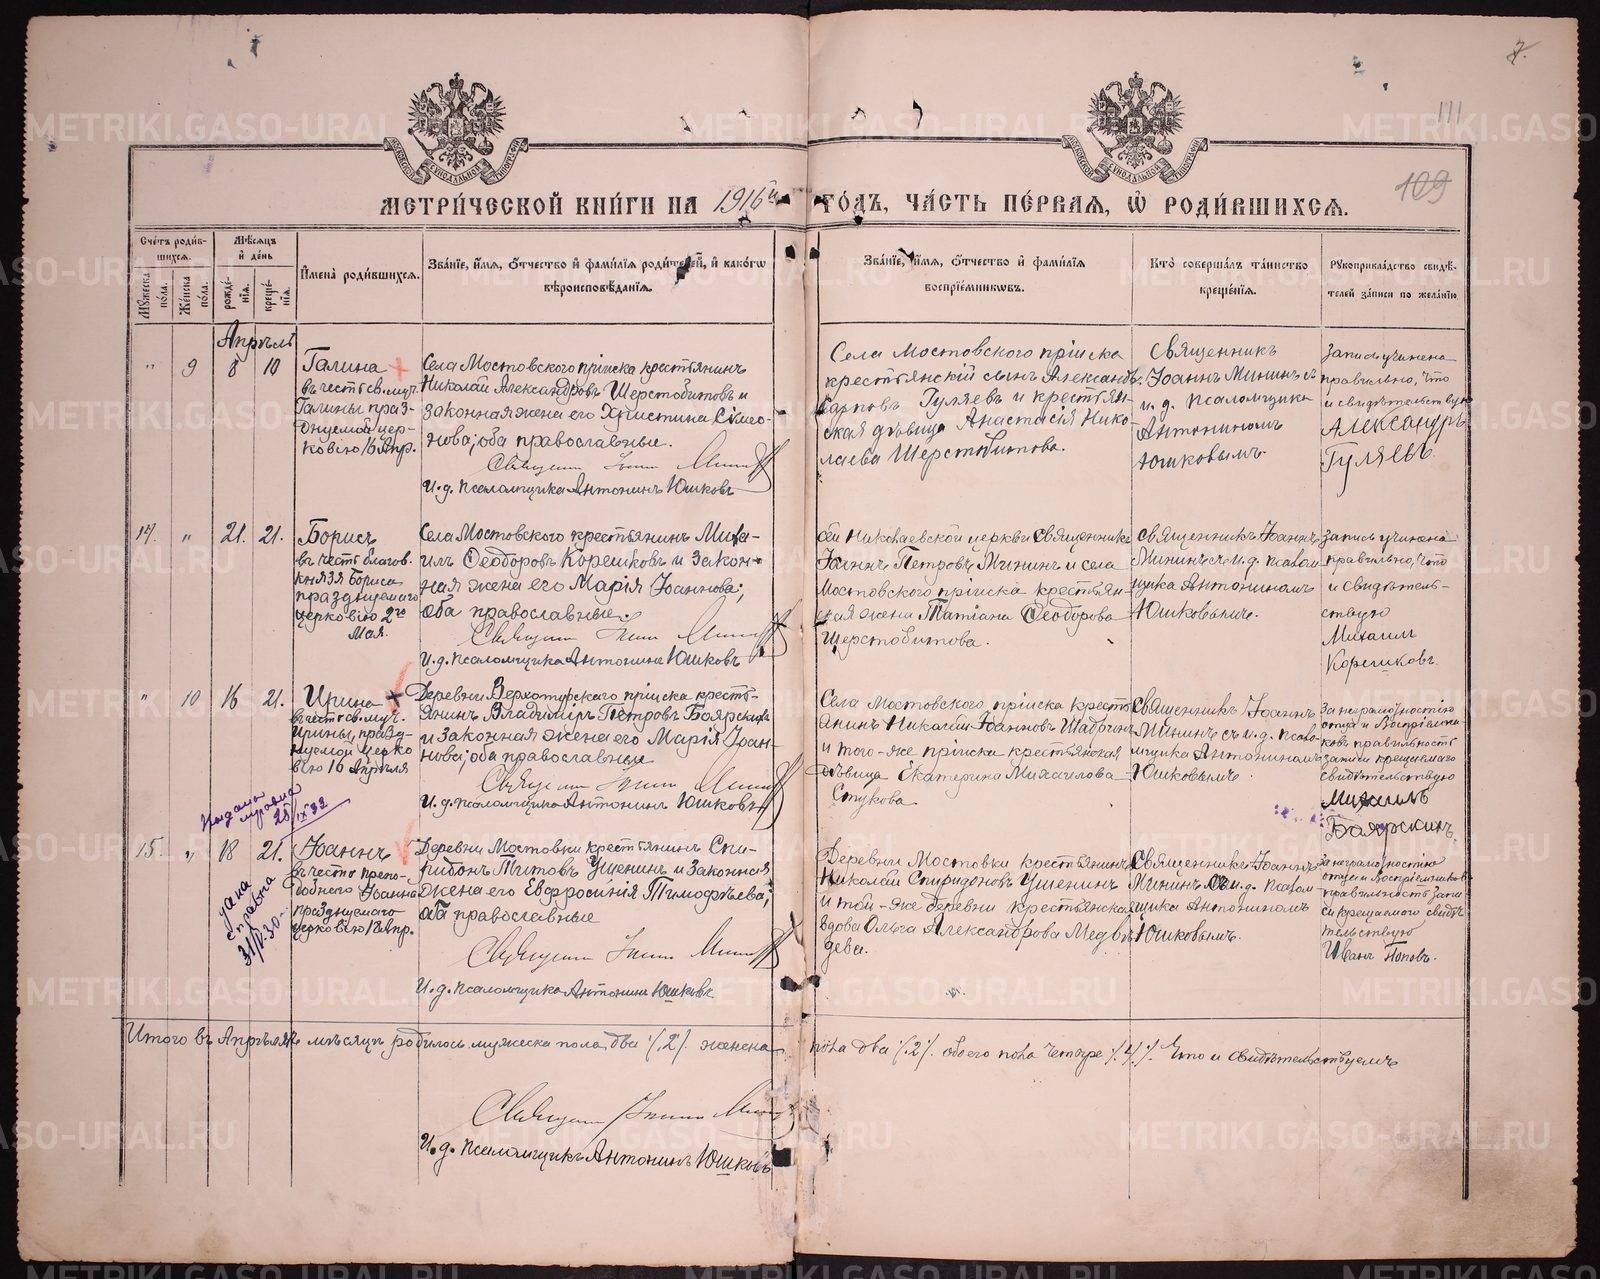 7.
111
109
МОСКОВСКОЙ СУНОДАЛЬНОЙ ТИПОГРАФІИ
МОСКОВСКОЙ СУНОДАЛЬНОЙ ТИПОГРАФІИ
МЕТРИ́ЧЕСКОЙ КНИ́ГИ НА 1916й ГО́ДЪ, ЧА́СТЬ ПЕ́РВАЯ, Ѡ РОДИ́ВШИХСЯ.
Сче́тъ роди́в-
шихся.
Мꙋ́жеска по́ла.
Же́нска по́ла.
Мѣ́сяцъ
и҆ де́нь
рожде́нія.
креще́нія.
И҆мена̀ роди́вшихся.
Зва́ніе, и҆́мя, ѻ҆́тчество и҆ фами́лія роди́телей, и҆ како́гѡ
вѣроисповѣ́данія.
Зва́ніе, и҆́мя, ѻ҆́тчество и҆ фами́лія
воспріе́мникѡвъ.
Кто̀ соверша́лъ та́инство
креще́нія.
Рꙋкоприкла́дство свидѣ́-
телей за́писи по жела́нію
Апрѣль
" 9 8 10
Галина
въ честь св. муч.
Галины празд-
днуемой цер-
ковію 16 Апр.
Села Мостовского пріиска крестьянинъ
Николай Александровъ Шерстобитовъ и
законная жена его Христина Симео-
нова; оба православные.
Священник Іоанн Минин
И. д. псаломщика Антонинъ Юшковъ
Села Мостовского пріиска
крестьянскій сынъ Александръ
Карповъ Гуляевъ и крестьян-
ская дѣвица Анастасія Нико-
лаева Шерстобитова.
Священникъ
Іоаннъ Мининъ съ
и. д. псаломщика
Антониномъ
Юшковымъ.
Запись учинена
правильно, что
и свидѣтельствую
Александръ
Гуляевъ
14. " 21. 21.
Борисъ
въ честь благов.
князя Бориса
празднуемаго
церковію 2го
Мая.
Села Мостовского крестьянинъ Миха-
илъ Ѳеодоровъ Корешковъ и закон-
ная жена его Марія Іоаннова;
оба православные.
Священник Іоанн Минин
И. д. псаломщика Антонинъ Юшковъ
Николаевской церкви Священникъ
Іоаннъ Петровъ Мининъ и села
Мостовского пріиска крестьян-
ская жена Татіана Ѳеодорова
Шерстобитова.
Священникъ Іоаннъ
Мининъ съ и. д. псалом
щика Антониномъ
Юшковымъ.
Запись учинена
правильно, что
и свидѣтель-
ствую
Михаилъ
Корешковъ.
" 10 16 21.
Ирина
въ честь св. муч.
Ирины, празд-
нуемой церко
вію 16 Апрѣля
Деревни Верхотурскаго пріиска кресть-
янинъ Владиміръ Петровъ Боярскихъ
и законная жена его Марія Іоан-
нова; оба православные
Священник Іоанн Минин
И. д. псаломщика Антонинъ Юшковъ
Села Мостовского пріиска кресть
янинъ Николай Іоанновъ Шабринъ
и того-же пріиска крестьянская
дѣвица Екатерина Михаилова
Стукова
Священникъ Іоаннъ
Мининъ съ и. д. псало-
мщика Антониномъ
Юшковымъ.
За неграмотностію
отца и воспріемни-
ковъ правильность
записи крещаемаго
свидѣтельствую
Михаилъ
Бояркинъ.
Выдана
25/IX 32
15. " 18 21.
Іоаннъ
въ честь препо-
добнаго Іоанна
празднуемаго
церковію 18 Апр.
дана
справка
31/V-30-
Деревни Мостовки крестьянинъ Спи-
ридонъ Титовъ Ушенинъ и законная
жена его Евфросинія Тимофѣева;
оба православные
Священник Іоанн Минин
И. д. псаломщика Антонинъ Юшковъ
Деревни Мостовки крестьянинъ
Николай Спиридоновъ Ушенинъ
и той-же деревни крестьянская
вдова Ольга Александрова Медвѣ
дева.
Священникъ Іоаннъ
Мининъ съ и. д. псалом-
щика Антониномъ
Юшковымъ.
За неграмотностію
отца и воспріемниковъ
правильность запи
си крещаемаго свидѣ
тельствую
Иванъ Поповъ.
Итого въ Апрѣлѣ мѣсяцѣ родилось мужеска пола два /.2/. женска пола два /.2/. обоего пола четыре /.4/. Что и свидѣтельствуемъ
Священник Іоанн Минин
И. д. псаломщикъ Антонинъ Юшковъ
METRIKI.GASO-URAL.RU